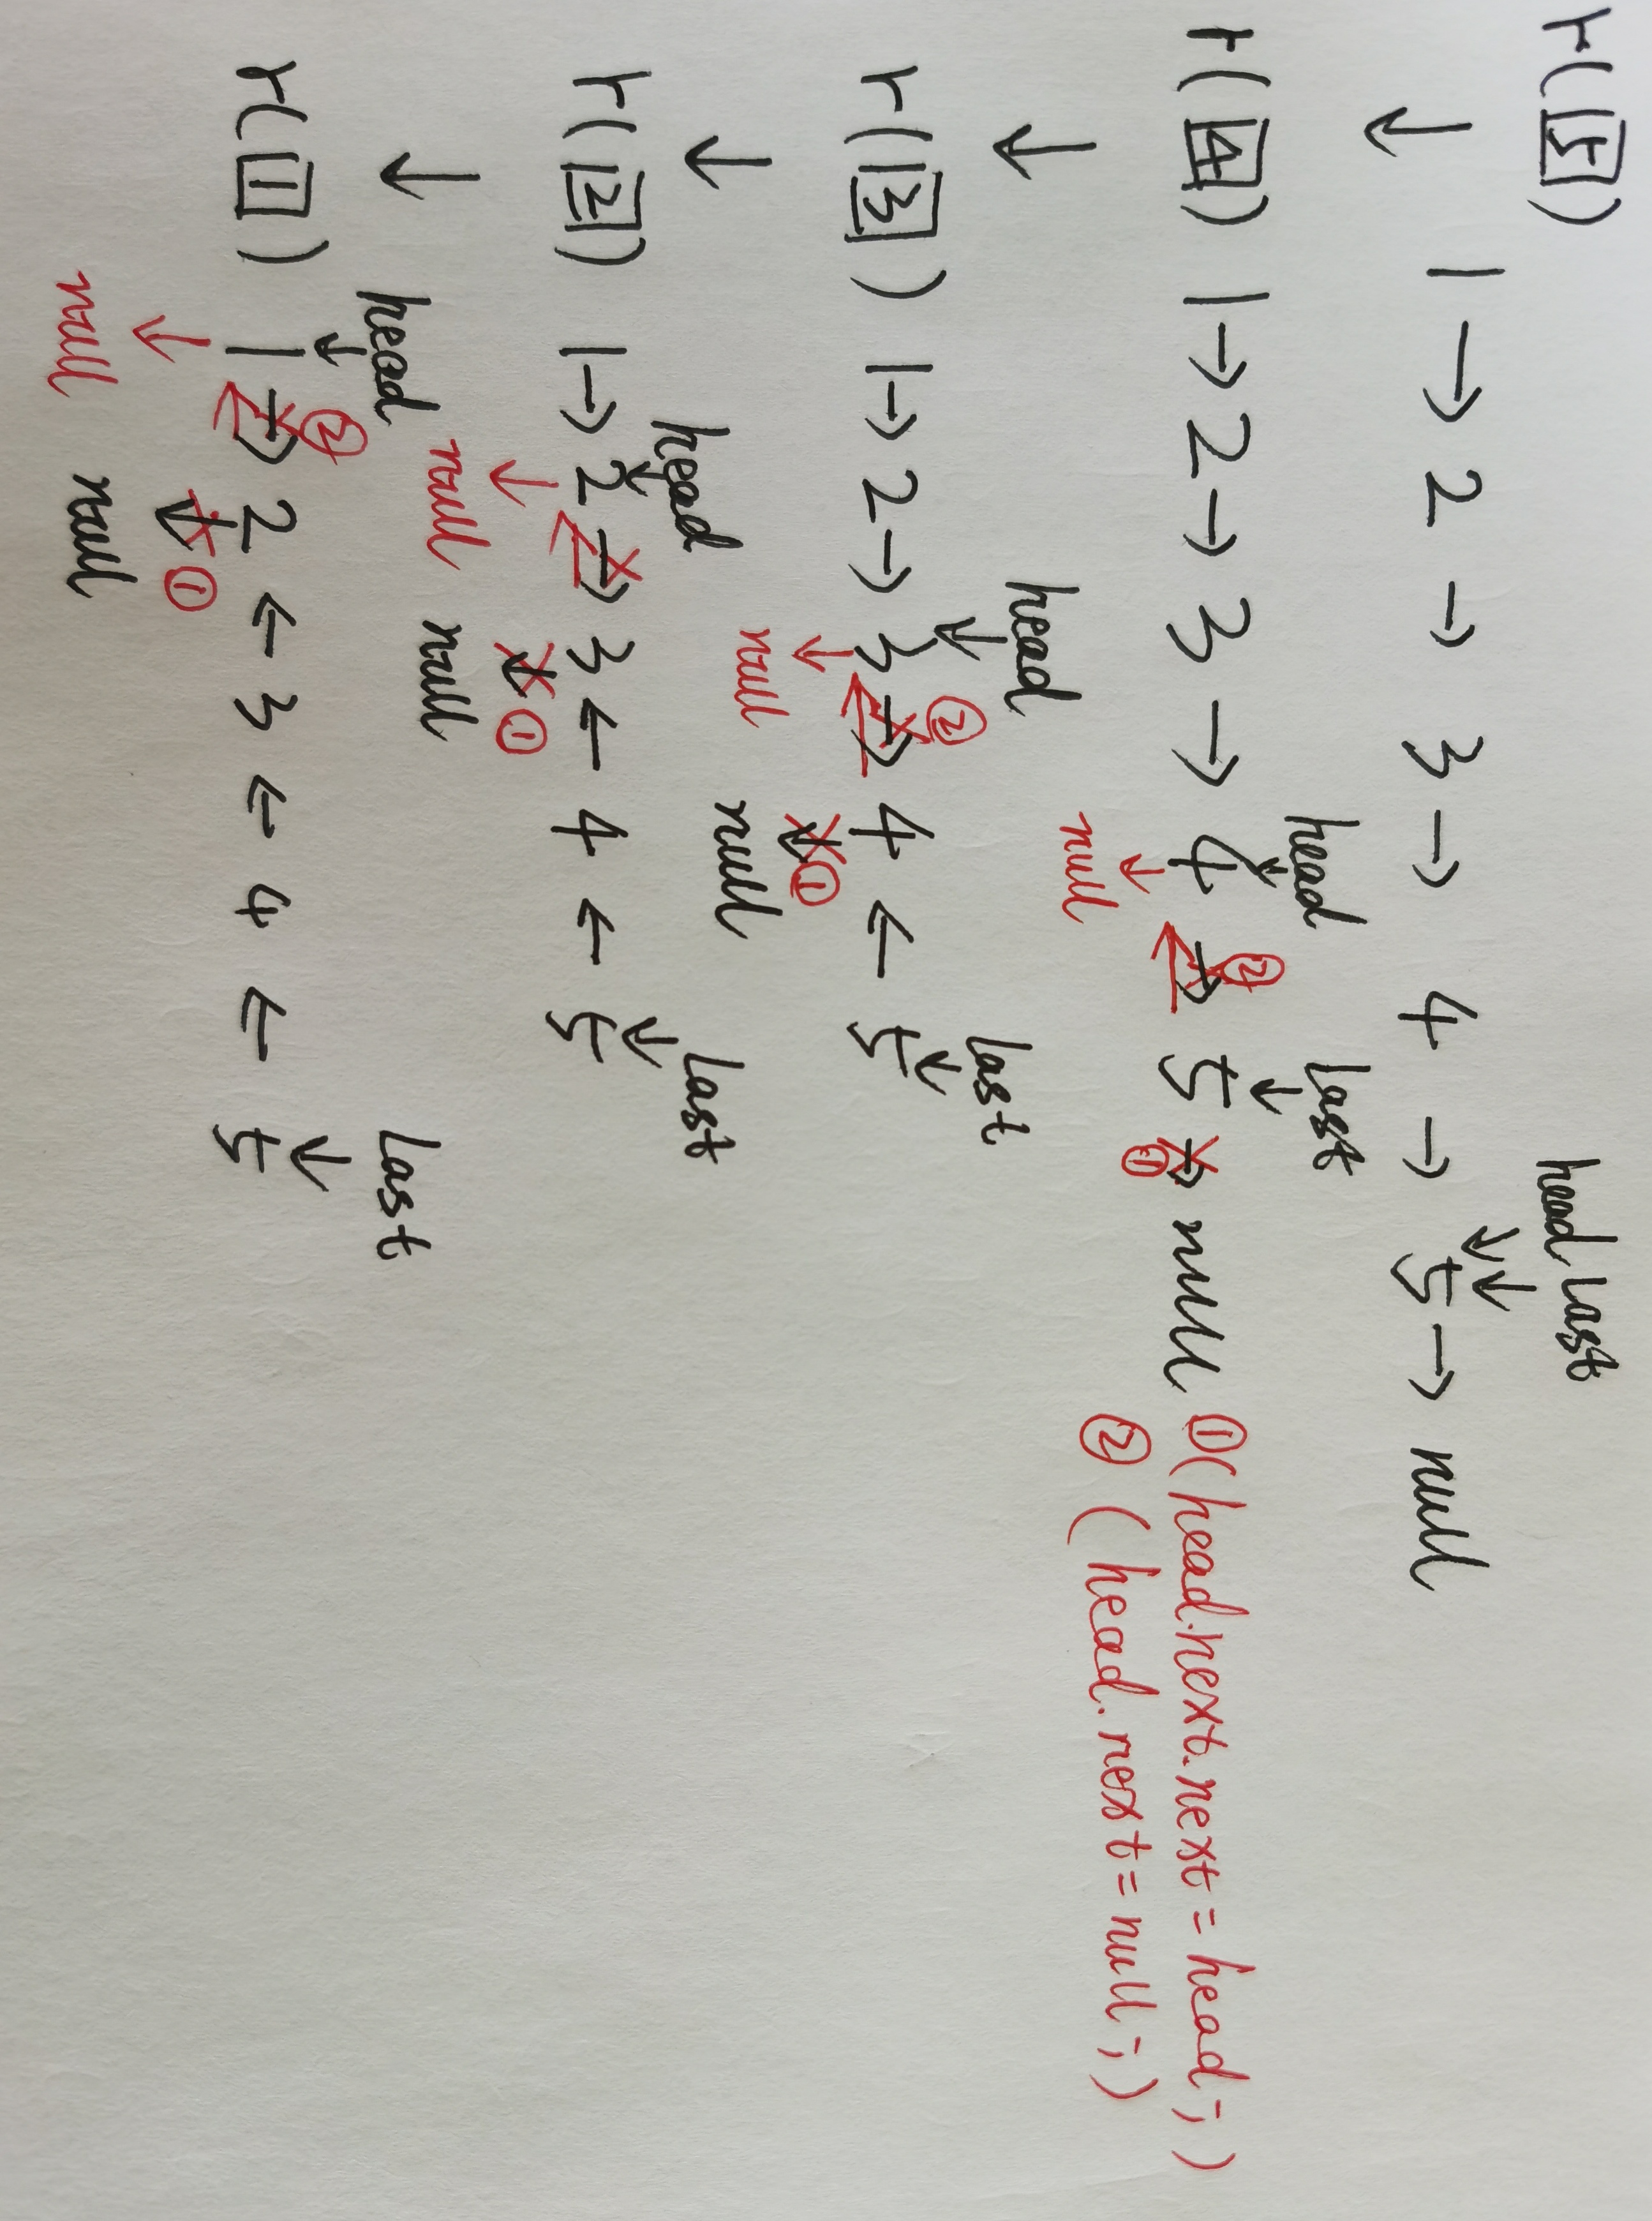 head last
r(5) 1 → 2 → 3 → 4 → 5 → null
↓
head last
r(4) 1 → 2 → 3 → 4 → 5 → null ①(head.next.next = head;)
② ①
null ②(head.next = null;)
↓
head last
r(3) 1 → 2 → 3 → 4 ← 5
② ①
null null
↓
head last
r(2) 1 → 2 → 3 ← 4 ← 5
①
null null
↓
head last
r(1) 1 → 2 ← 3 ← 4 ← 5
② ①
null null